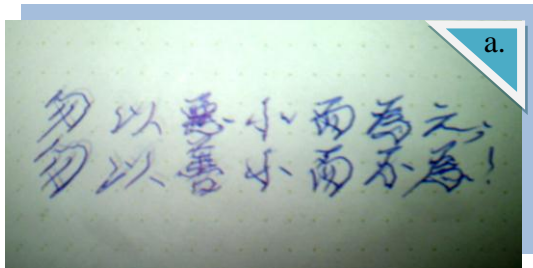 a.
勿以惡小而為之;
勿以善小而不為!